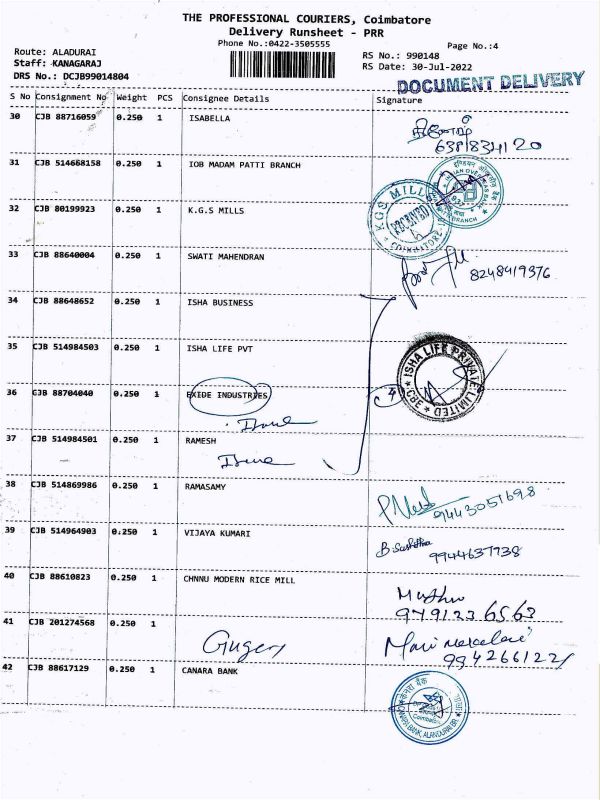 THE PROFESSIONAL COURIERS, Coimbatore
Delivery Runsheet - PRR
Phone No.:0422-3505555
Page No.:4
Route: ALADURAI
Staff: KANAGARAJ
DRS No.: DCJB99014804
RS No.: 990148
RS Date: 30-Jul-2022
DOCUMENT DELIVERY
S No Consignment No Weight PCS Consignee Details Signature
30 CJB 88716059 0.250 1 ISABELLA
31 CJB 514668158 0.250 1 IOB MADAM PATTI BRANCH
32 CJB 80199923 0.250 1 K.G.S MILLS
K.G.S MILLS RECEIVED COIMBATORE
33 CJB 88640004 0.250 1 SWATI MAHENDRAN
8248419376
34 CJB 88648652 0.250 1 ISHA BUSINESS
35 CJB 514984503 0.250 1 ISHA LIFE PVT
ISHA LIFE PRIVATE LIMITED CBE
36 CJB 88704040 0.250 1 EXIDE INDUSTRIES
4
37 CJB 514984501 0.250 1 RAMESH
38 CJB 514869986 0.250 1 RAMASAMY
9443051698
39 CJB 514964903 0.250 1 VIJAYA KUMARI
9944637738
40 CJB 88610823 0.250 1 CHNNU MODERN RICE MILL
Muthu
9791236563
41 CJB 201274568 0.250 1
42 CJB 88617129 0.250 1 CANARA BANK